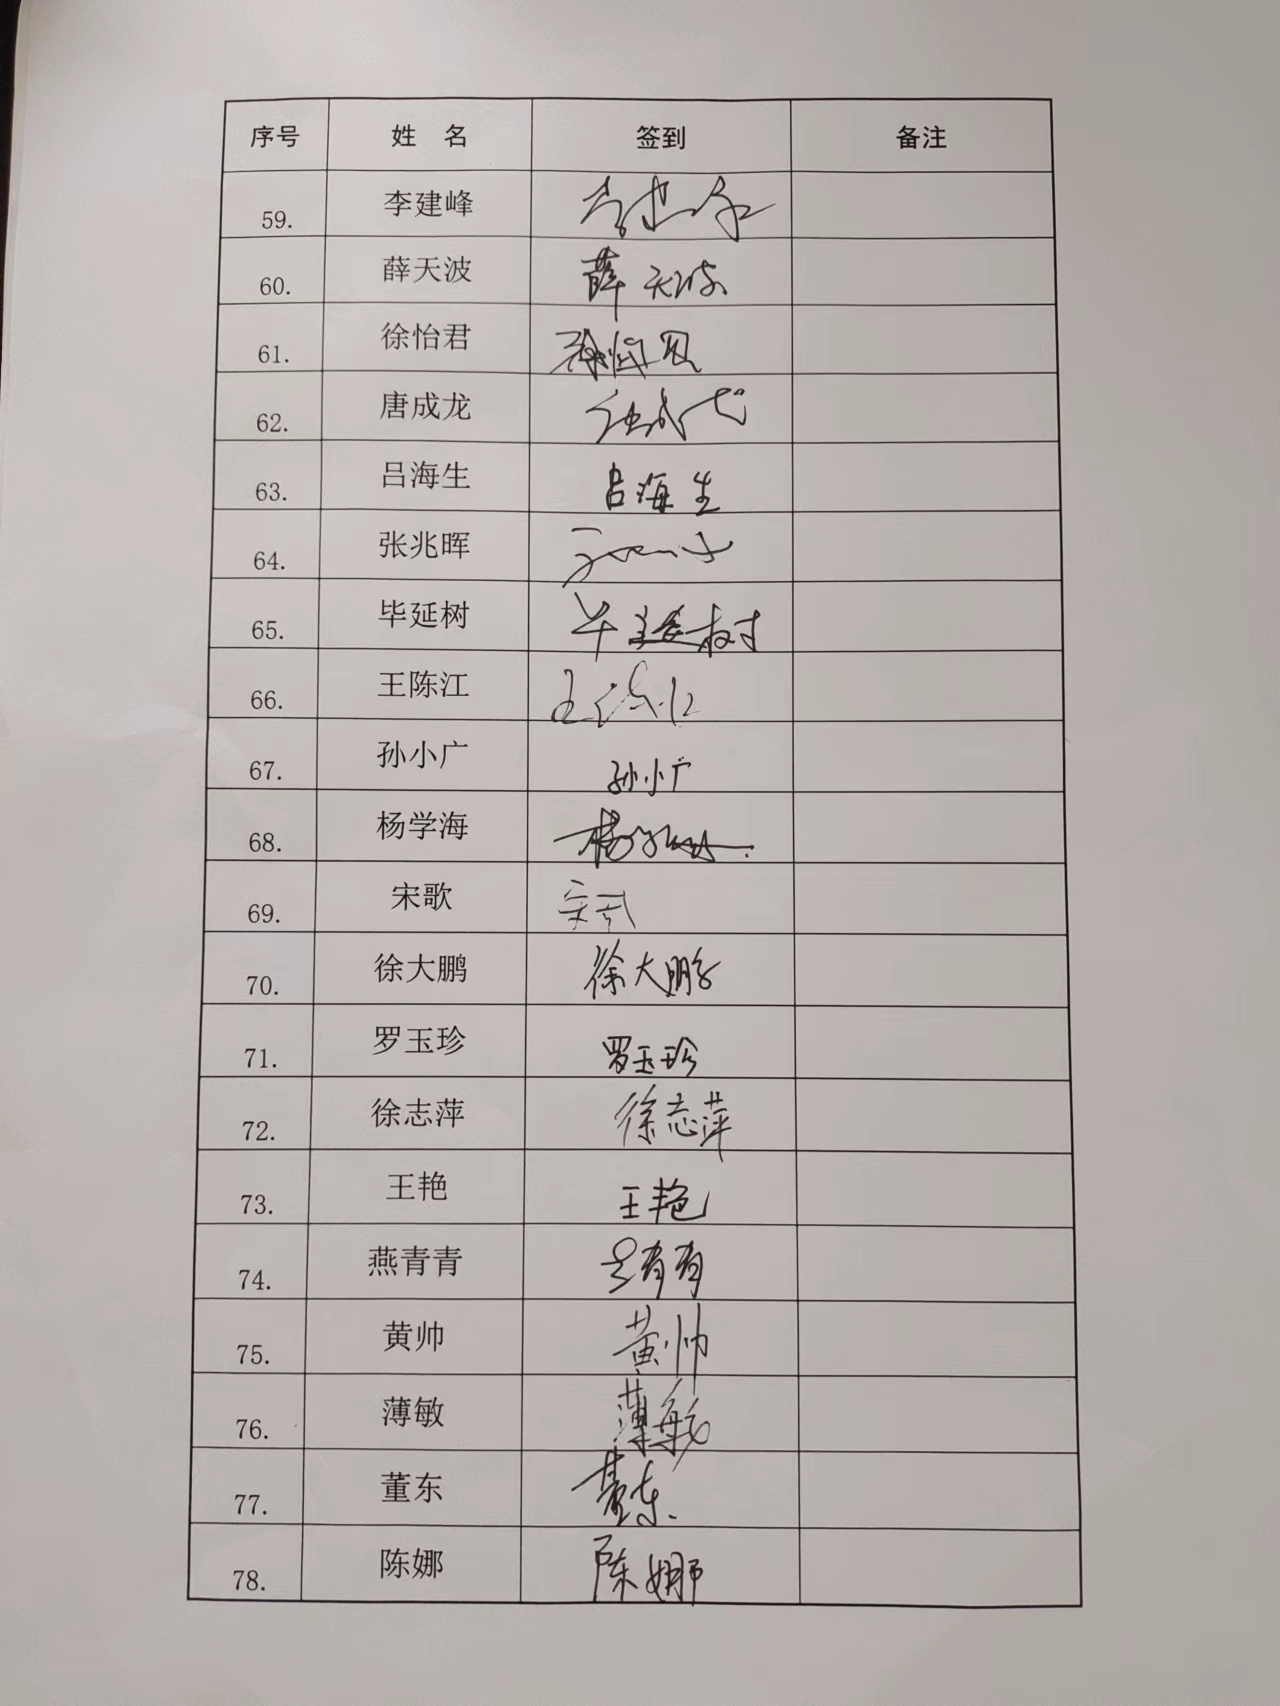 序号 姓 名 签到 备注
59. 李建峰 李建峰
60. 薛天波 薛天波
61. 徐怡君 徐怡君
62. 唐成龙 唐成龙
63. 吕海生 吕海生
64. 张兆晖
65. 毕延树 毕延树
66. 王陈江 王陈江
67. 孙小广 孙小广
68. 杨学海 杨学海
69. 宋歌 宋歌
70. 徐大鹏 徐大鹏
71. 罗玉珍 罗玉珍
72. 徐志萍 徐志萍
73. 王艳 王艳
74. 燕青青 燕青青
75. 黄帅 黄帅
76. 薄敏 薄敏
77. 董东 董东
78. 陈娜 陈娜